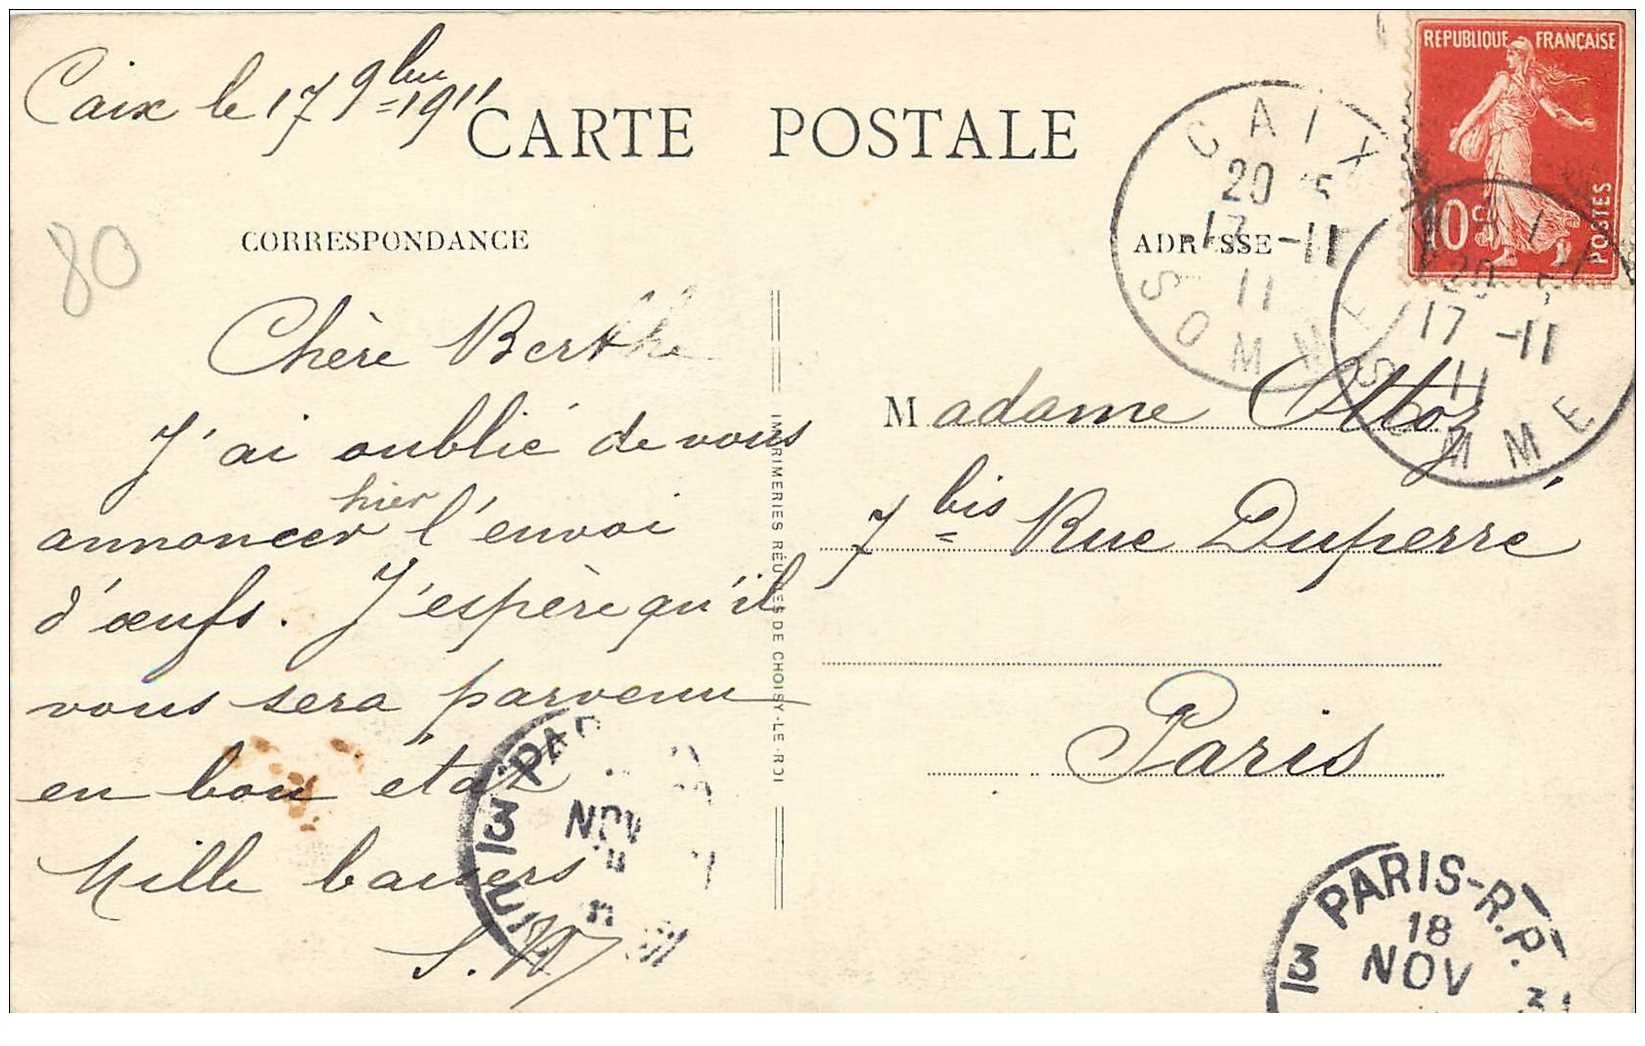 Caix le 17 9bre 1911
CARTE POSTALE
RÉPUBLIQUE FRANÇAISE
10 c.
POSTES
CAIX
20 5
17 -11
11
SOMME
20 5
17 -11
11
SOMME
80
CORRESPONDANCE
ADRESSE
Chère Berthe
J'ai oublié de vous
hier
annoncer l'envoi
d'œufs. J'espère qu'il
vous sera parvenu
en bon état
Mille baisers
IMPRIMERIES RÉUNIES DE CHOISY-LE-ROI
Madame Ottoz
7 bis Rue Duperré
Paris
PAR
13
NOV
PARIS-R.P.
18
NOV
13